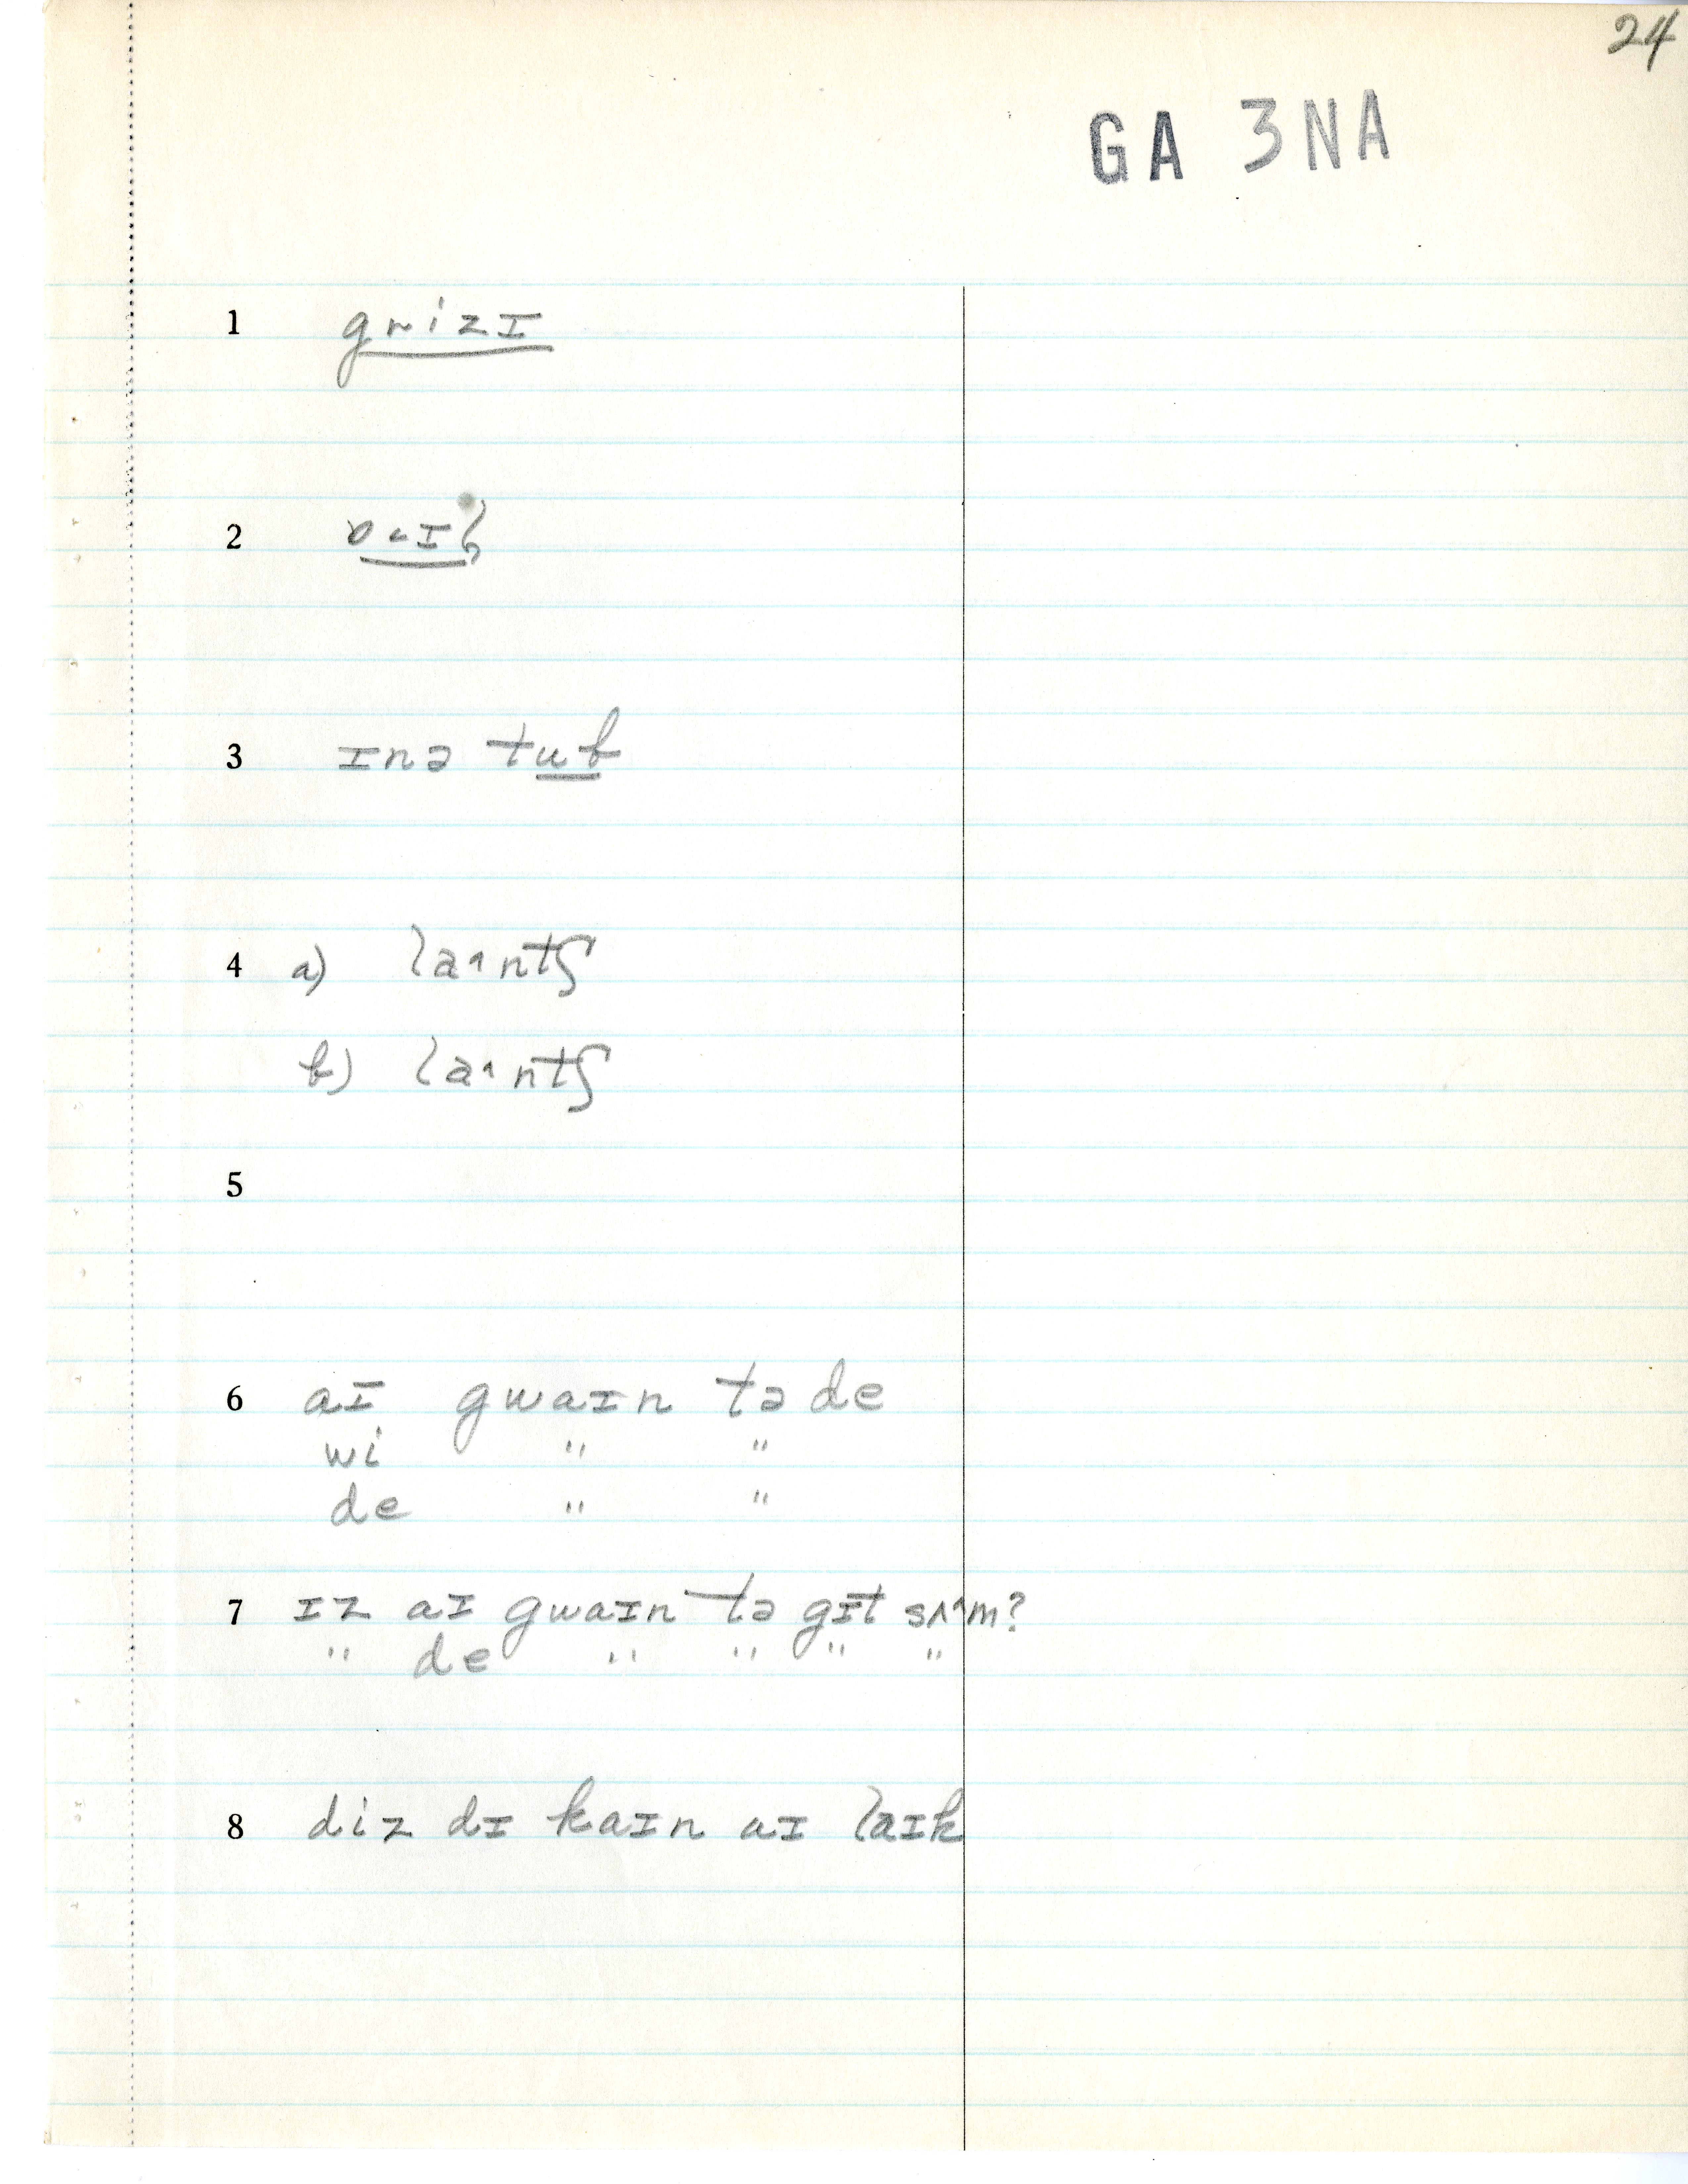 24
GA 3NA
1 grizɪ
2
3 ɪnə tub
4 a) laˑntʃ
b) laˑntʃ
5
6 aɪ gwaɪn tə de
wi " "
de " "
7 ɪz aɪ gwaɪn tə gɪt sʌˑm?
" de " " " "
8 diz dɪ kaɪn aɪ laɪk